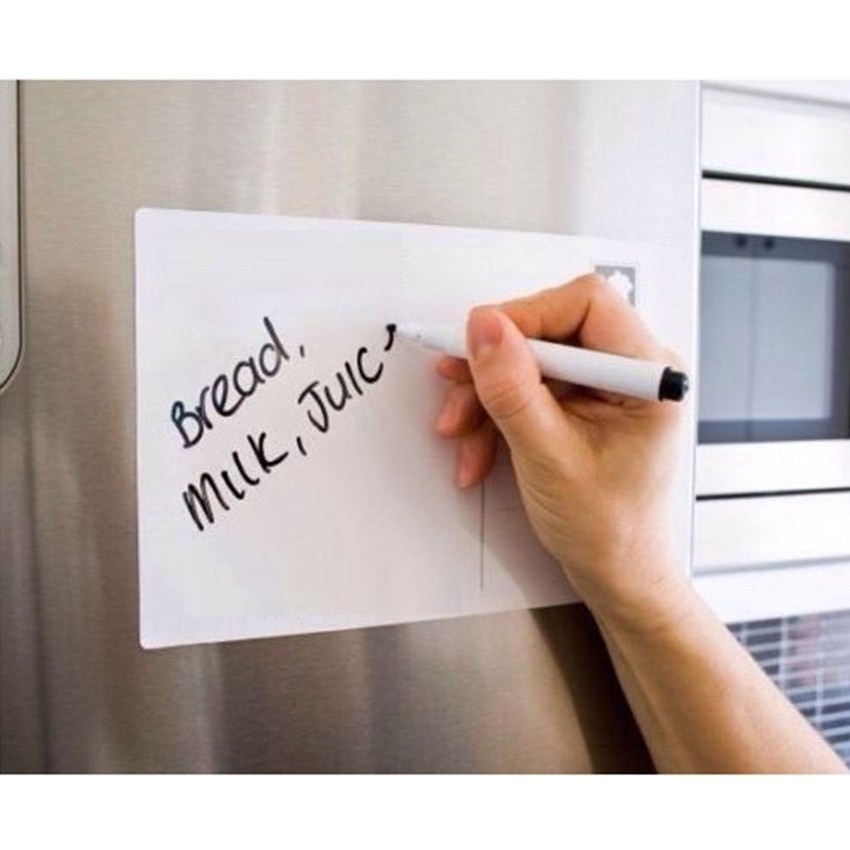 Bread,
Milk, Juic